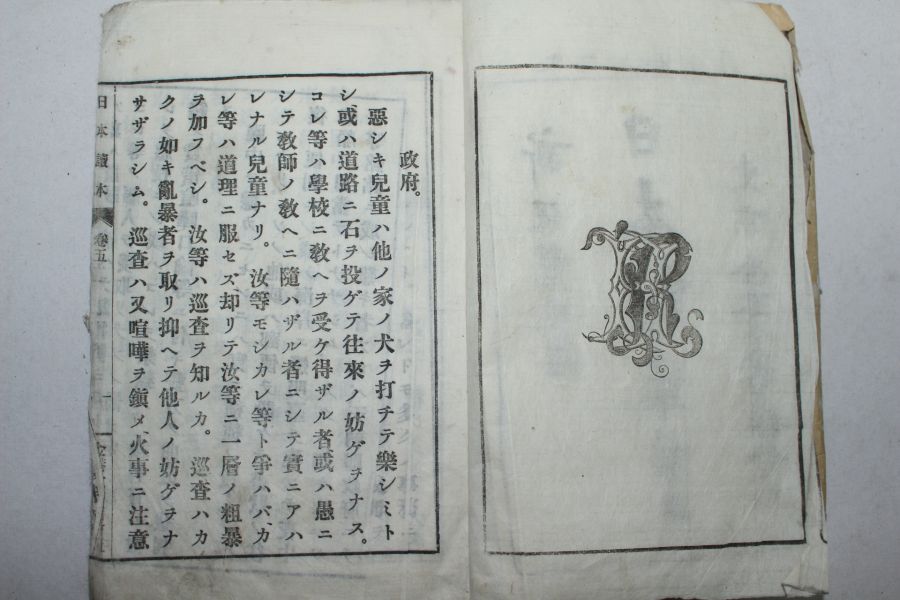 政府。
惡シキ兒童ハ他ノ家ノ犬ヲ打チテ樂シミト
シ、或ハ道路ニ石ヲ投ゲテ往來ノ妨ゲヲナス。
コレ等ハ學校ニ敎ヘヲ受ケ得ザル者、或ハ愚ニ
シテ敎師ノ敎ヘニ隨ハザル者ニシテ實ニアハ
レナル兒童ナリ。汝等モシカレ等ト爭ハバ、カ
レ等ハ道理ニ服セズ、却リテ汝等ニ一層ノ粗暴
ヲ加フベシ。汝等ハ巡査ヲ知ルカ。巡査ハカ
クノ如キ亂暴者ヲ取リ抑ヘテ他人ノ妨ゲヲナ
サザラシム。巡査ハ又喧嘩ヲ鎭メ、火事ニ注意
日本讀本 卷五 一